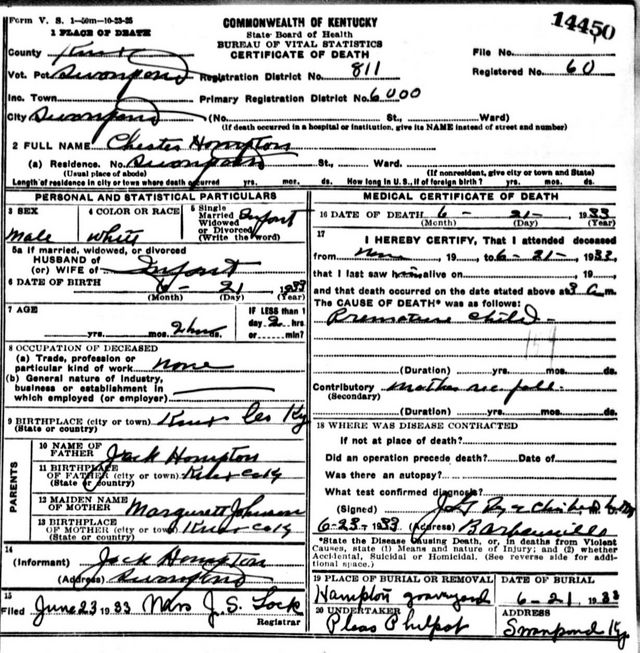 Form V. S. 1-50m-10-23-25
COMMONWEALTH OF KENTUCKY
State Board of Health
BUREAU OF VITAL STATISTICS
CERTIFICATE OF DEATH
14450
1 PLACE OF DEATH
County Knox
File No.
Vot. Pct Swanpond Registration District No. 811
Registered No. 60
Inc. Town Primary Registration District No. 6000
City Swanpond (No. St., Ward)
(If death occurred in a hospital or institution, give its NAME instead of street and number)
2 FULL NAME Chester Hompton
(a) Residence. No. Swanpond St., Ward.
(Usual place of abode) (If nonresident, give city or town and State)
Length of residence in city or town where death occurred yrs. mos. ds. How long in U. S., if of foreign birth? yrs. mos. ds.
PERSONAL AND STATISTICAL PARTICULARS
3 SEX Male
4 COLOR OR RACE White
5 Single Married Widowed or Divorced (Write the word) Infant
5a If married, widowed, or divorced
HUSBAND of
(or) WIFE of Infant
6 DATE OF BIRTH 6 - 21 1933
(Month) (Day) (Year)
7 AGE yrs. mos. 2 hours
IF LESS than 1 day 2 hrs or min?
8 OCCUPATION OF DECEASED
(a) Trade, profession or particular kind of work none
(b) General nature of Industry, business or establishment in which employed (or employer)
9 BIRTHPLACE (city or town) Knox Co Ky
(State or country)
PARENTS
10 NAME OF FATHER Jack Hompton
11 BIRTHPLACE OF FATHER (city or town) Knox Co Ky
(State or country)
12 MAIDEN NAME OF MOTHER Margurett Johnson
13 BIRTHPLACE OF MOTHER (city or town) Knox Co Ky
(State or country)
14
(Informant) Jack Hompton
(Address) Swanpond
15
Filed June 23 1933 Mrs J. S. Lock
Registrar
MEDICAL CERTIFICATE OF DEATH
16 DATE OF DEATH 6 - 21 - 1933
(Month) (Day) (Year)
17
I HEREBY CERTIFY, That I attended deceased
from none, 19 , to 6-21-, 1933,
that I last saw him alive on , 19 ,
and that death occurred on the date stated above at 3 a m.
The CAUSE OF DEATH* was as follows:
Premature Child
159
(Duration) yrs. mos. ds.
Contributory Mother fall
(Secondary)
(Duration) yrs. mos. ds.
18 WHERE WAS DISEASE CONTRACTED
If not at place of death?
Did an operation precede death? Date of
Was there an autopsy?
What test confirmed diagnosis?
(Signed)
6-23-1933 (Address) Barbourville
*State the Disease Causing Death, or, in deaths from Violent
Causes, state (1) Means and nature of Injury; and (2) whether
Accidental, Suicidal or Homicidal. (See reverse side for addi-
tional space.)
19 PLACE OF BURIAL OR REMOVAL DATE OF BURIAL
Hampton graveyard 6-21, 1933
20 UNDERTAKER ADDRESS
Pleas Philpot Swanpond Ky